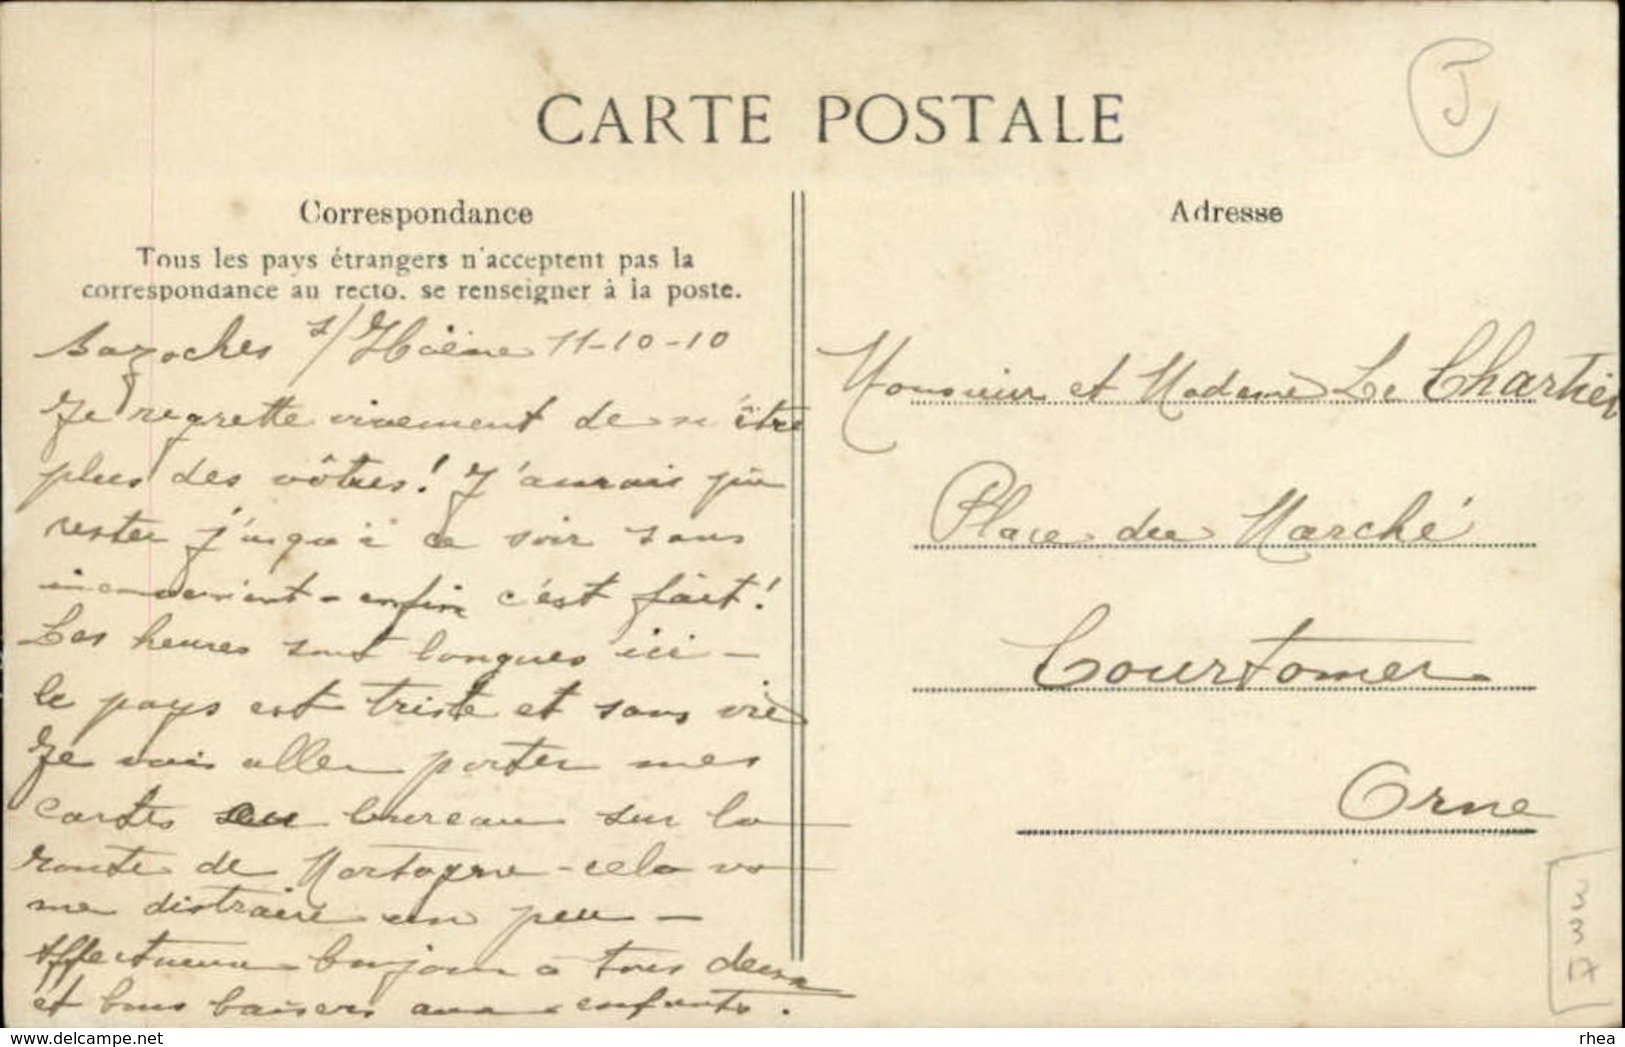 CARTE POSTALE
J
Correspondance
Tous les pays étrangers n'acceptent pas la
correspondance au recto. se renseigner à la poste.
Bazoches s/ Hoëne 11-10-10
Je regrette vivement de n'être
plus des vôtres! J'aurais pu
rester j'usqu'à ce soir sans
inconvenient - enfin c'est fait!
Les heures sont longues ici -
le pays est triste et sans vie
Je vais aller porter mes
cartes au bureau sur la
route de Mortagne - cela va
me distraire un peu -
Affectueux bonjour à tous deux
et bons baisers aux enfants.
Adresse
Monsieur et Madame Le Chartier
Place du Marché
Courtomer
Orne
www.delcampe.net
rhea